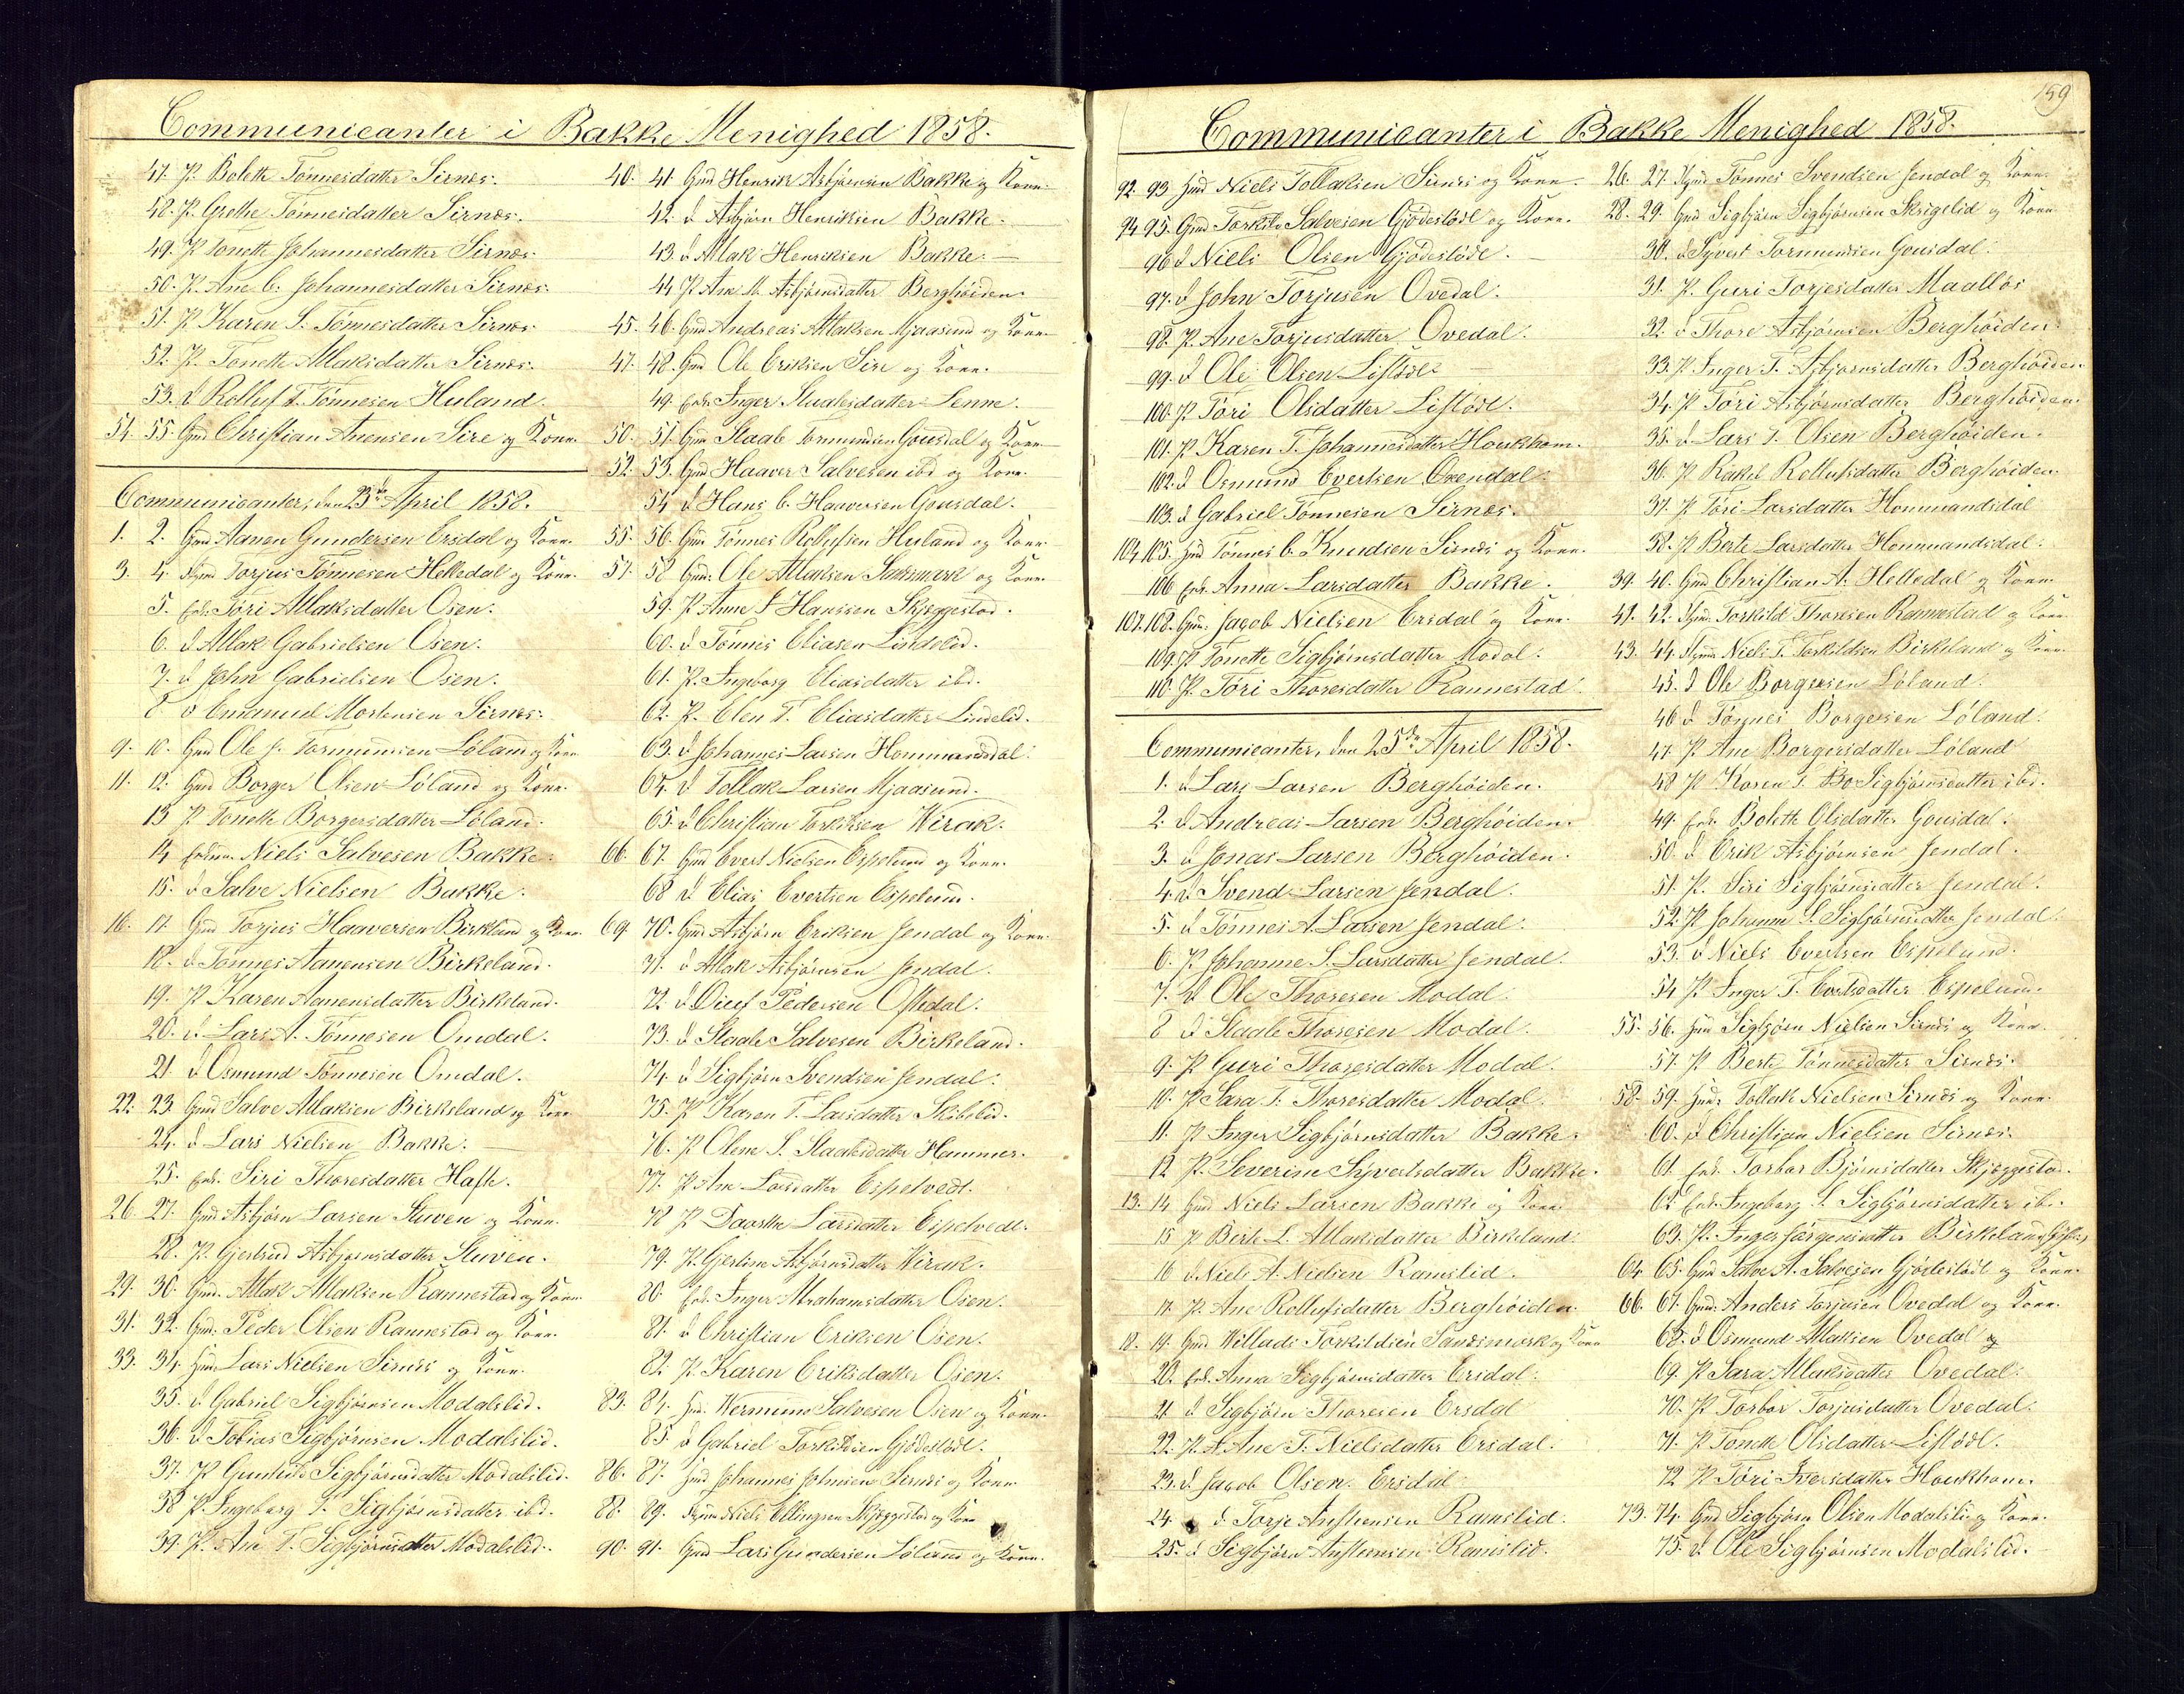 Communicanter i Bakke Menighed 1858.
47. P. Bolette Tønnesdatter Sirnes.
48. P. Grethe Tønnesdatter Sirnes.
49. P. Tonette Johannesdatter Sirnes.
50. P. Ane C. Johannesdatter Sirnes.
51. P. Karen S. Tønnesdatter Sirnes.
52. P. Tonette Atlaksdatter Sirnes.
53. d Rolluf T. Tønnesen Huland.
54. 55. Gmd Christian Anensen Sire og Kone.
Communicanter, den 23de April 1858.
1. 2. Gmd Aanen Gundersen Ersdal og Kone.
3. 4. Torjus Tønnesen Helledal og Kone.
5. Enk. Töri Atlaksdatter Osen.
6. d Atlak Gabrielsen Osen.
7. d John Gabrielsen Osen.
8. d Emanuel Mortensen Sirnes.
9. 10. Gmd Ole Tormundsen Löland og Kone
11. 12. Gmd Borger Olsen Löland og Kone.
13 P Tonette Borgersdatter Löland.
14 Niels Salvesen Bakke.
15. d Salve Nielsen Bakke.
16. 17. Gmd Torjus Haaversen Birkland og Kone.
18. d Tønnes Aanensen Birkeland.
19. P Karen Aanensdatter Birkeland.
20. d Lars A. Tønnesen Omdal.
21. d Osmund Tønnesen Omdal.
22. 23. Gmd Salve Atlaksen Birkeland og Kone
24. d Lars Nielsen Bakke.
25. Enk. Siri Thoresdatter Hafte.
26. 27. Gmd Asbjørn Larsen Stuven og Kone.
28. P. Gjertrud Asbjørnsdatter Stuven.
29. 30. Gmd. Atlak Atlaksen Rannestad og Kone
31. 32. Gmd. Peder Olsen Rannestad og Kone.
33. 34. Lars Nielsen Sirnes og Kone.
35. d Gabriel Sigbjørnsen Modalslid.
36. d Tobias Sigbjørnsen Modalslid.
37. P Gunhild Sigbjørnsdatter Modalslid.
38 P. Ingeborg T. Sigbjørnsdatter ibd.
39. P. Ane T. Sigbjørnsdatter Modalslid.
40. 41. Gmd Henrik Asbjørnsen Bakke og Kone.
42. d Asbjørn Henriksen Bakke.
43. d Atlak Henriksen Bakke.
44 P Ane M. Asbjørnsdatter Berghöiden.
45. 46. Gmd Andreas Atlaksen Mjaasund og Kone
47. 48. Gmd Ole Eriksen Sire og Kone.
49. Enk. Inger Staalesdatter Lenne.
50. 51. Gmd Staale Tormundsen Gousdal og Kone
52. 53. Gmd Haaver Salvesen ibd og Kone.
54 d Hans C. Haaversen Gousdal.
55. 56. Gmd Tønnes Rollufsen Huland og Kone
57. 58 Gmd. Ole Atlaksen Sandsmark og Kone.
59. P. Anne S Hanssen Skjeggestad.
60. d Tønnes Eliasen Lindelid.
61. P. Ingeborg Eliasdatter ibd.
62. P. Elen T. Eliasdatter Lindelid.
63. d Johannes Larsen Hommandsdal.
64. d Tollak Larsen Mjaasund.
65. d Christian Torkelsen Wirak.
66. 67. Gmd Evert Nielsen Espelund og Kone.
68 d Elias Evertsen Espelund.
69 70. Gmd Asbjørn Eriksen Jendal og Kone.
71. d Atlak Asbjørnsen Jendal.
72. d Oluf Pedersen Oftedal.
73. d Staale Salvesen Birkeland.
74. d Sigbjørn Svendsen Jendal.
75. P Karen T. Larsdatter Skibelid.
76. P Olene S. Staalesdatter Hammer.
77. P Ane Larsdatter Espetvedt.
78 P Daarthe Larsdatter Espetvedt.
79. P. Gjertine Asbjørnsdatter Wirak.
80. Enk. Inger Abrahamsdatter Osen.
81. d Christian Eriksen Osen.
82 P. Karen Eriksdatter Osen.
83. 84. Wermund Salvesen Osen og Kone.
85. d Gabriel Torkildsen Gjödeslödt.
86. 87. Johannes Johnsen Sirnes og Kone
88. 89. Niels Ellingsen Skjeggestad og Kone
90. 91. Gmd Lars Gundersen Löland og Kone.
159
Communicanter i Bakke Menighed 1858.
92. 93 Niels Tollaksen Sirnes og Kone.
94 95. Gmd Torkild Salvesen Gjödeslödt og Kone.
96 d Niels Olsen Gjödeslödt.
97. d John Torjusen Ovedal.
98. P. Ane Torjusdatter Ovedal.
99. d Ole Olsen Liflödt
100. P. Töri Olsdatter Liflödt.
101. P Karen T. Johannesdatter Houkhom.
102. d Osmund Evertsen Oxendal.
103. d Gabriel Tønnesen Sirnes.
104 105. Tønnes C. Knudsen Sirnes og Kone.
106 Enk. Anna Larsdatter Bakke.
107. 108. Gmd. Jacob Nielsen Ersdal og Kone.
109. P Tonette Sigbjørnsdatter Modal.
110. P. Töri Thoresdatter Rannestad.
Communicanter, den 25de April 1858.
1. d Lars Larsen Berghöiden.
2. d Andreas Larsen Berghöiden.
3. d Jonas Larsen Berghöiden.
4. d Svend Larsen Jendal.
5. d Tønnes A. Larsen Jendal.
6. P Johanne S. Larsdatter Jendal.
7. d Ole Thoresen Modal.
8 d Staale Thoresen Modal.
9. P Guri Thoresdatter Modal.
10. P Sara T. Thoresdatter Modal.
11. P Inger Sigbjørnsdatter Bakke.
12 P. Severine Syvertsdatter Bakke.
13. 14 Gmd Niels Larsen Bakke og Kone
15 P Berte L Atlaksdatter Birkeland.
16 d Niels A. Nielsen Ramslid.
17. P. Ane Rollufsdatter Berghöiden.
18. 19. Gmd Willads Torkildsen Sandsmark og Kone
20. Enk. Anna Sigbjørnsdatter Ersdal.
21 d Sigbjørn Thoresen Ersdal
22. P. Ane T. Nielsdatter Ersdal.
23. d Jacob Olsen Ersdal
24 d. Torje Anstensen Ramslid.
25. d Sigbjørn Anstensen Ramslid.
26. 27. Tønnes Svendsen Jendal og Kone.
28. 29. Gmd Sigbjørn Sigbjørnsen Skrigelid og Kone
30. d Syvert Tormundsen Gousdal.
31. P. Guri Torjesdatter Maalløs
32. d Thore Asbjørnsen Berghöiden.
33. P Inger T. Asbjørnsdatter Berghöiden.
34. P Töri Asbjørnsdatter Berghöiden.
35. d Lars T. Olsen Berghöiden.
36. P Rakel Rollufsdatter Berghöiden.
37. P Töri Larsdatter Hommandsdal
38. P Berte Larsdatter Hommandsdal.
39. 40. Gmd Christian A. Helledal og Kone.
41. 42. Torkild Thoresen Rannestad og Kone.
43. 44. Niels T. Torkildsen Birkeland og Kone.
45. d Ole Borgersen Löland.
46 d Tønnes Borgersen Löland.
47. P. Ane Borgersdatter Löland
48 P Karen T. Sigbjørnsdatter ibd.
49. Enk. Bolette Olsdatter Gousdal.
50. d Erik Asbjørnsen Jendal.
51. P. Siri Sigbjørnsdatter Jendal.
52. P Johanne S. Sigbjørnsdatter Jendal.
53. d Niels Evertsen Espelund.
54 P Inger T. Evertsdatter Espelund.
55. 56. Sigbjørn Nielsen Sirnes og Kone.
57. P Berte Tønnesdatter Sirnes.
58. 59. Tollak Nielsen Sirnes og Kone.
60. d Christian Nielsen Sirnes.
61 Enk. Torbor Bjørnsdatter Skjeggestad.
62 Enk. Ingeborg S. Sigbjørnsdatter ibd.
63. P. Inger Jørgensdatter Birkeland
64 65. Gmd Salve A. Salvesen Gjödeslödt og Kone.
66. 67. Gmd. Anders Torjusen Ovedal og Kone.
68. d Osmund Atlaksen Ovedal og
69. P Sara Atlaksdatter Ovedal.
70. P Torbor Torjusdatter Ovedal.
71. P Tonette Olsdatter Liflödt.
72 P Töri Iversdatter Houkhom.
73. 74. Gmd Sigbjørn Olsen Modalsli og Kone.
75. d. Ole Sigbjørnsen Modalslid.